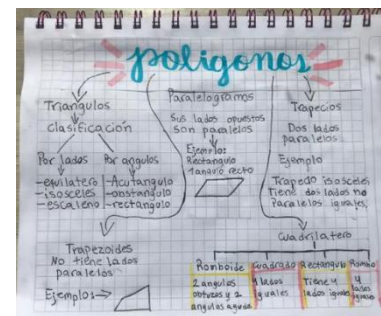 polígonos
Triangulos
clasificación
Por lados
-equilatero
-isosceles
-escaleno
Por angulos
-Acutangulo
-obstangulo
-rectangulo
Paralelogramos
Sus lados opuestos
son paralelos
Ejemplo:
Rectangulo
1 angulo recto
Trapecios
Dos lados
paralelos
Ejemplo
Trapecio isosceles
Tiene dos lados no
Paralelos iguales
Trapezoides
No tiene lados
paralelos
Ejemplo:
Cuadrilatero
Romboide
2 angulos
obtuzos y 2
angulos agudos
Cuadrado
lados
iguales
Rectangulo
Tiene 4
lados iguales
Rombo
4
lados
iguales